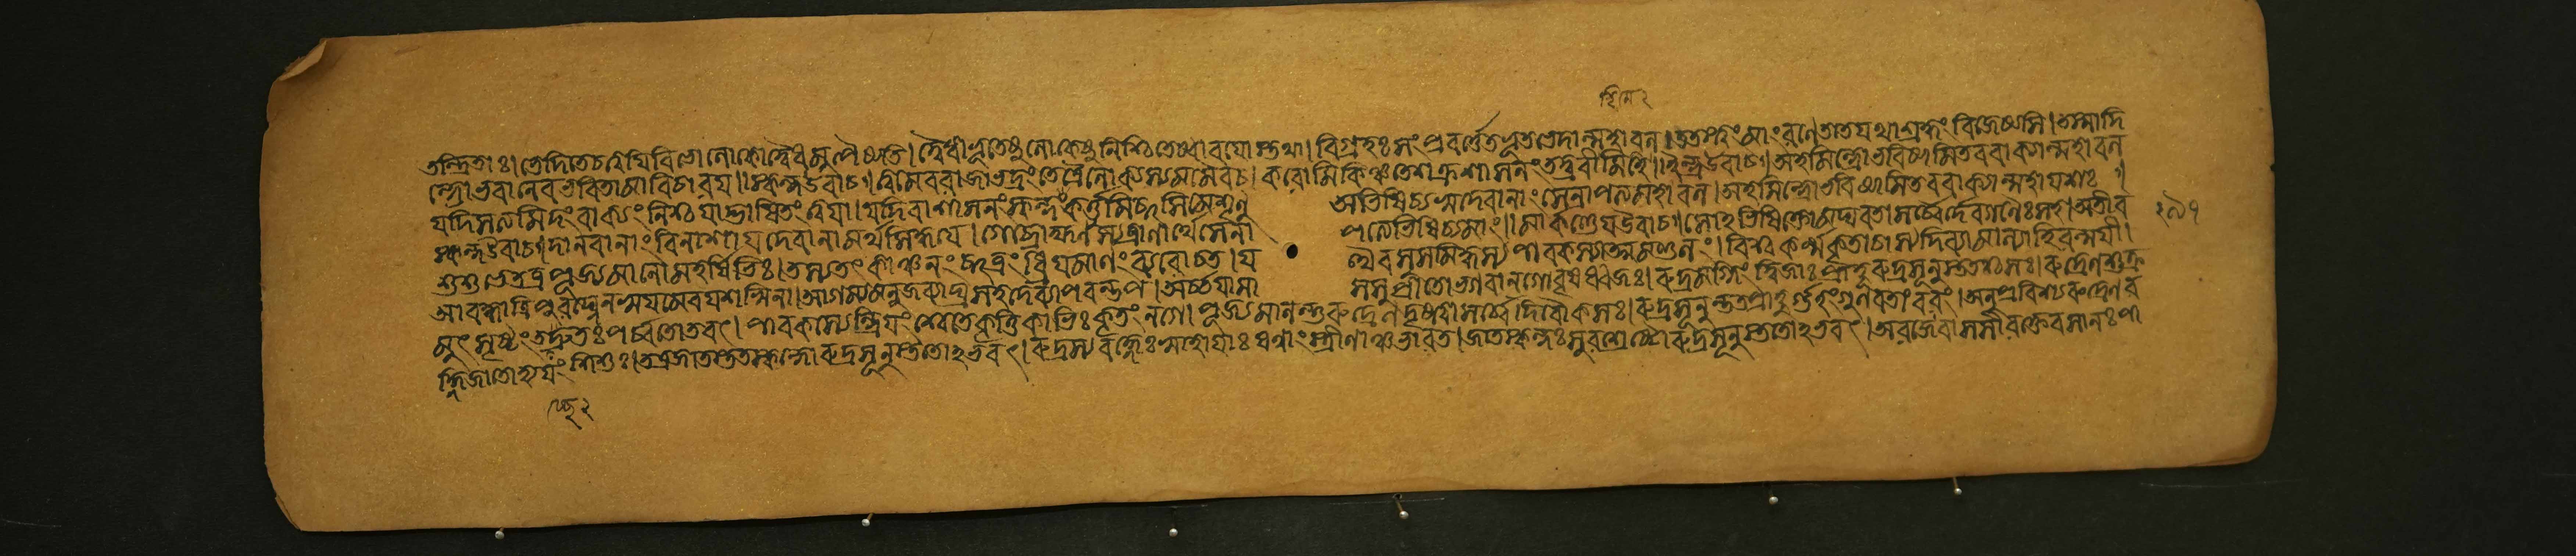 তন্দ্রিতাঃ। ভেদিতেচত্বয়িবিভোলোকোদ্বৈধমুপৈষ্যতি। দ্বৈধীভূতেষুলোকেষুনিশ্চিতেষ্বাবয়োস্তথা। বিগ্রহঃসংপ্রবর্ত্তেতভূতভেদান্মহাবল। তত্রত্বংমাংরণেতাতযথাশ্রদ্ধংবিজেষ্যসি। তস্মাদি
ন্দ্রোভবানেবভবিতামাবিচারয়॥ স্কন্দউবাচ॥ ত্বমেবরাজাভদ্রংতেত্রৈলোক্যস্যমমৈবচ। করোমিকিঞ্চতেশক্রশাসনংতদ্ব্রবীহিমে॥ ইন্দ্রউবাচ॥ অহমিন্দ্রোভবিষ্যামিতববাক্যান্মহাবল
যদিসত্যমিদংবাক্যংনিশ্চয়াদ্ভাষিতংত্বয়া। যদিবাশাসনংস্কন্দকর্ত্তুমিচ্ছসিমেশৃণু অভিষিচ্যস্বদেবানাংসেনাপত্যেমহাবল। অহমিন্দ্রোভবিষ্যামিতববাক্যান্মহাযশঃ॥ ২৯৭
স্কন্দউবাচ॥ দানবানাংবিনাশায়দেবানামর্থসিদ্ধয়ে। গোব্রাহ্মণস্যত্রাণার্থেসেনা পত্যেভিষিঞ্চমাং॥ মার্কণ্ডেয়উবাচ॥ সোঽভিষিক্তোমঘবতাসর্ব্বৈর্দেবগণৈঃসহ। অতীব
শুশুভেতত্রপূজ্যমানোমহর্ষিভিঃ। তস্যতৎকাঞ্চনংছত্রংধ্রিয়মাণংব্যরোচত। য থৈবসুসমিদ্ধস্যপাবকস্যাত্মমণ্ডলং। বিশ্বকর্ম্মকৃতাচাস্যদিব্যামালাহিরন্ময়ী।
আবদ্ধাত্রিপুরঘ্নেনস্বয়মেবযশস্বিনা। আগম্যমনুজব্যাঘ্রসহদেব্যাপরন্তপ। অর্চ্চয়ামা সসুপ্রীতোভগবান্গোবৃষধ্বজঃ। রুদ্রমগ্নিংদ্বিজাঃপ্রাহুরুদ্রসূনুস্ততশ্চসঃ। রুদ্রেণশুক্র
মুৎসৃষ্টংতচ্ছ্বেতঃপর্ব্বতোভবৎ। পাবকস্যেন্দ্রিয়ংশ্বেতেকৃত্তিকাভিঃকৃতংনগে। পূজ্যমানন্তুরুদ্রেণদৃষ্ট্বাসর্ব্বেদিবৌকসঃ। রুদ্রসূনুন্ততপ্রাহুর্গুহংগুণবতাংবরং। অনুপ্রবিশ্যরুদ্রেণব
হ্নিজাতোহ্যয়ংশিশুঃ। তত্রজাতস্ততস্কন্দোরুদ্রসূনুস্ততোঽভবৎ। রুদ্রস্যবহ্নেঃস্বাহায়াঃষণ্ণাংস্ত্রীণাঞ্চভারত। জাতস্কন্দঃসুরশ্রেষ্ঠোরুদ্রসূনুস্ততোঽভবৎ। অরজেবাসসীরক্তেবসানঃপা